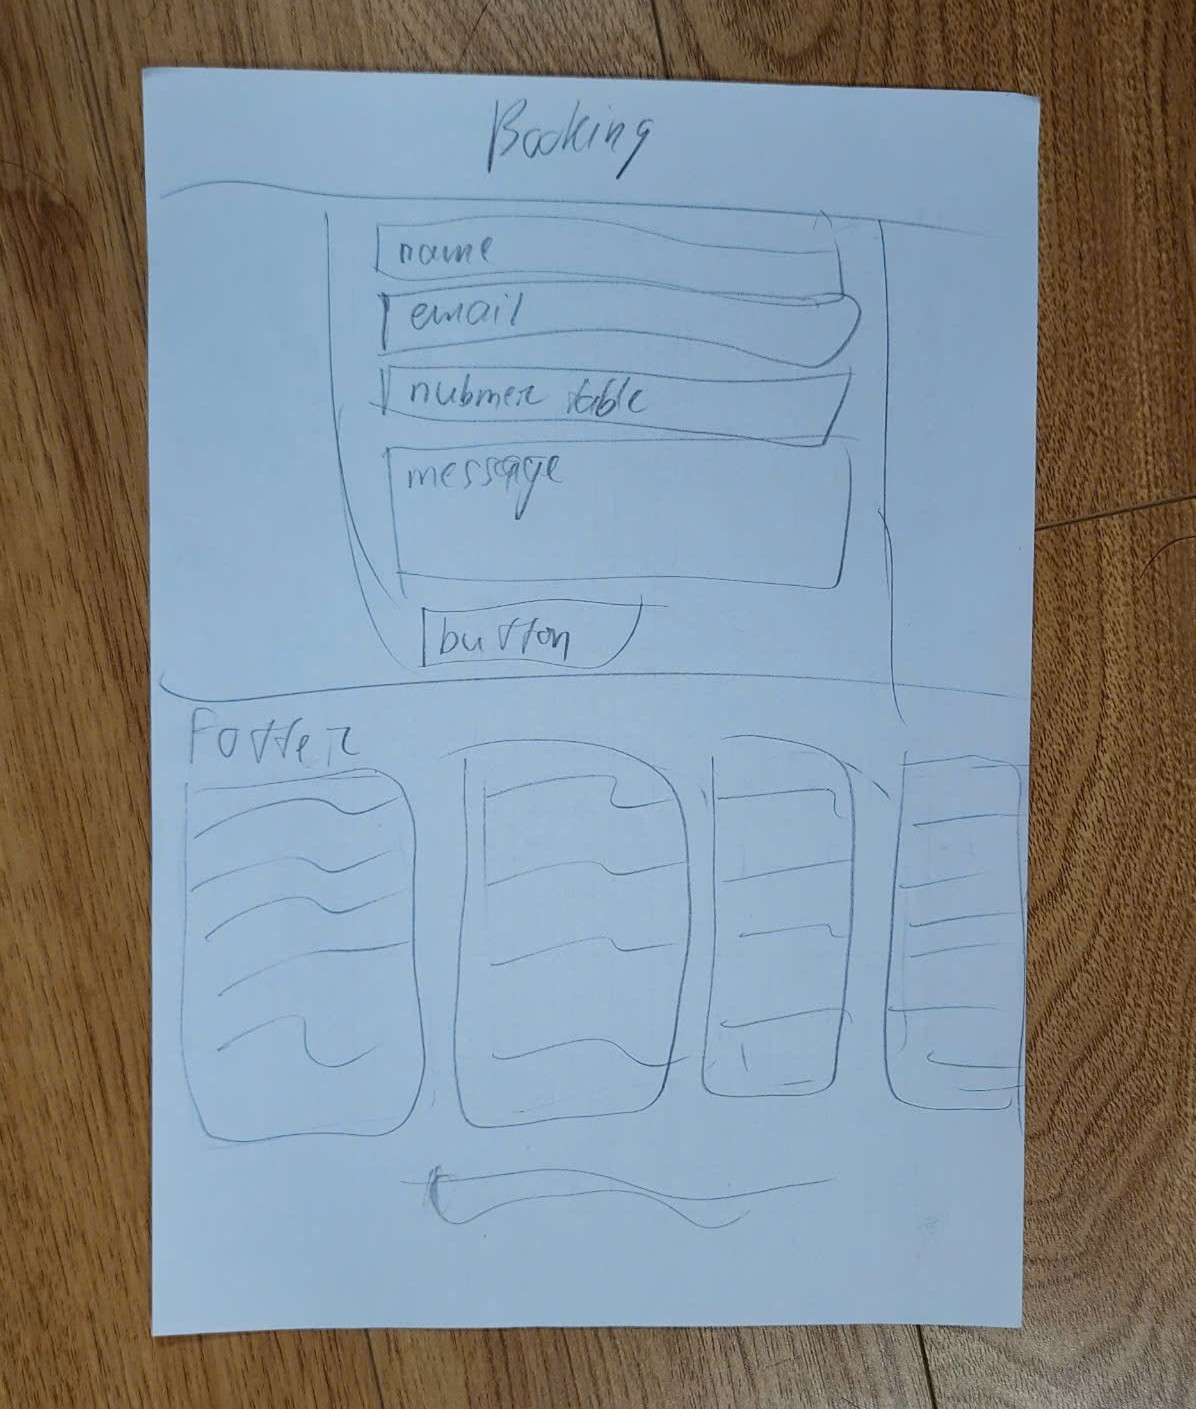 Booking
name
email
nubmer table
message
button
Fotter